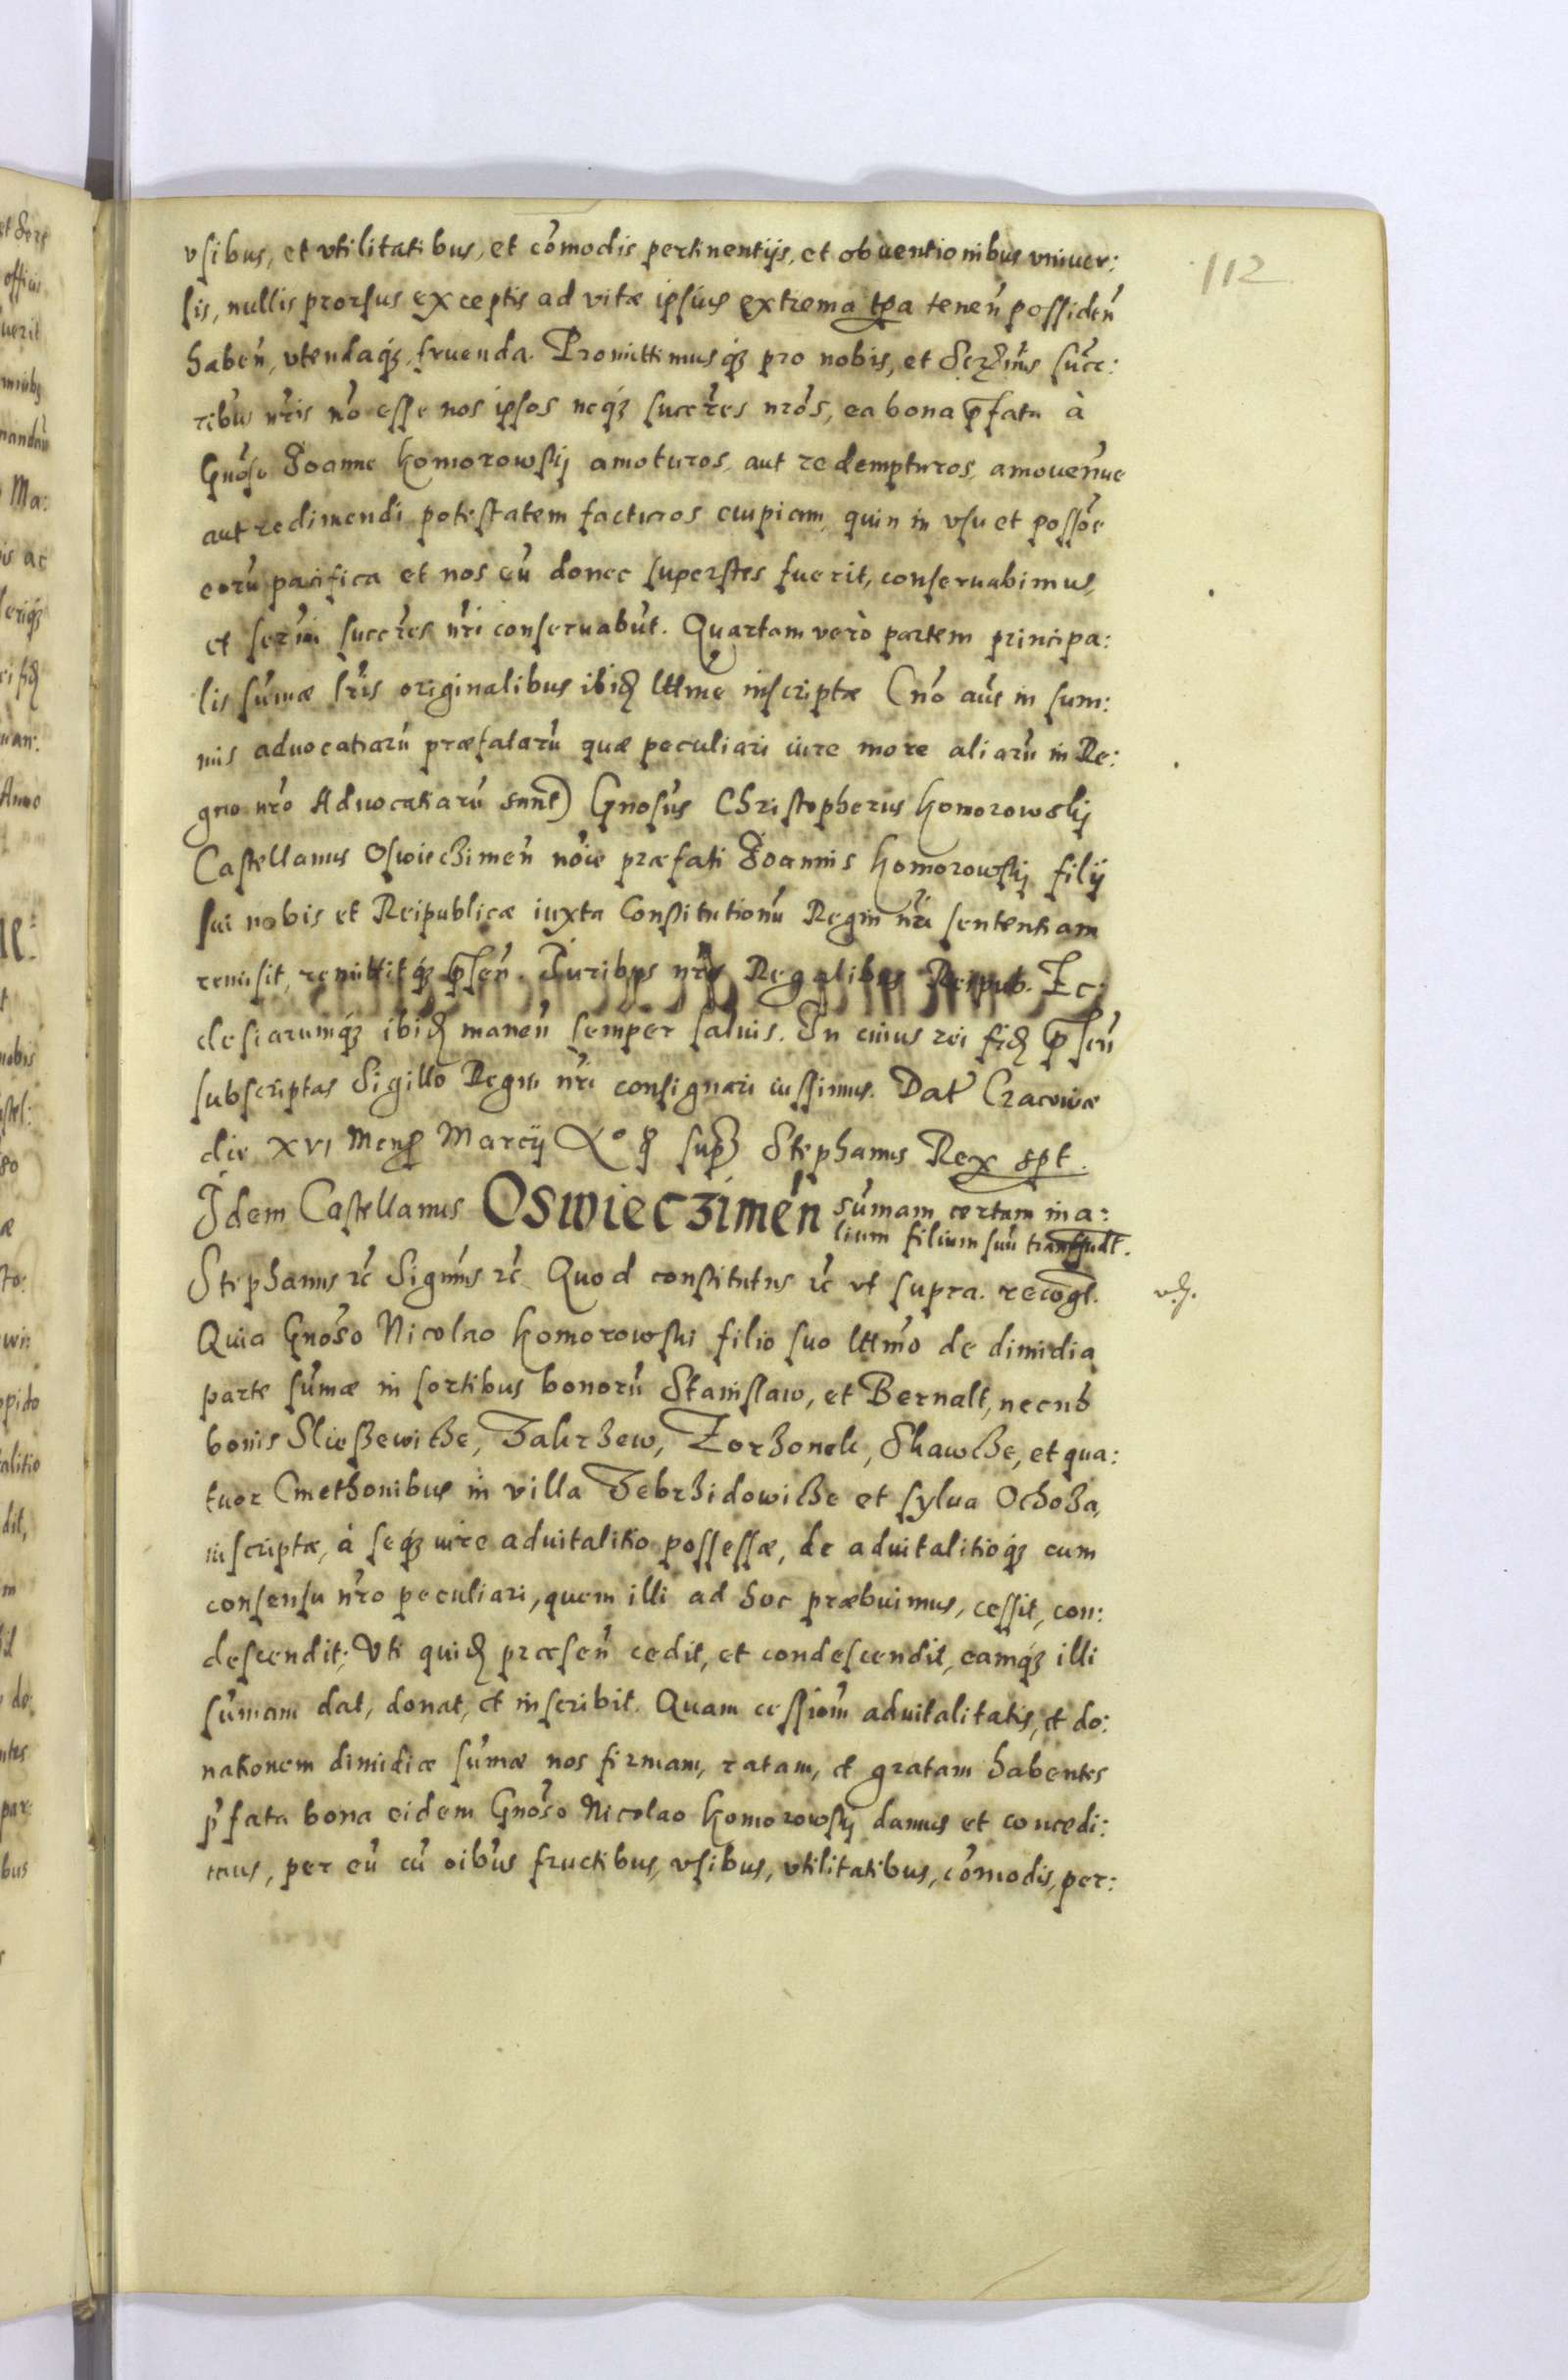 112
vsibus, et vtilitatibus, et cõmodis pertinentijs, et obuentionibus vniuer:
sis, nullis prorsus exceptis ad vitæ ipsius extrema tpa tenen̄ possiden̄
haben̄, vtendaq́ fruenda. Promittimusq́ pro nobis, et Ser̃mis succ:
ribus nr̃is nõ esse nos ipsos neq́ succr̃es nrõs, ea bona p̃fata à
Gnõso Joanne Komorowskÿ amoturos, aut redempturos, amouen̄ue
aut redimendi potestatem facturos cuipiam, quin in vsu et possõe
eorũ pacifica et nos eũ donec superstes fuerit, conseruabimus,
et ser̃mi succr̃es nr̃i conseruabũt. Quartam verò partem principa:
lis sũmæ lr̃is originalibus ibid̃ lttme inscriptæ (nõ aũt in sum:
mis aduocatiarũ præfatarũ quæ peculiari iure more aliarũ in Re:
gno nrõ Aduocatiarũ sunt) Gnosus Christopherus Komorowskÿ
Castellanus Oswieczimen̄ nõie præfati Joannis Komorowskÿ filij
sui nobis et Reipublicæ iuxta Constitutionũ Regni nr̃i sententiam
remisit, remittitq́ p̃sen̄. Juribus nr̃is Regalibus Reipub. Ec:
clesiarumq́ ibid̃ manen̄ semper saluis. In cuius rei fid̃ p̃sen̄
subscriptas Sigillo Regni nr̃i consignari iussimus. Dat Cracouiæ
die XVI Mens̃ Marcij Aº q̃ sup̃ Stephanus Rex spt.
Idem Castellanus Oswieczimen̄ sũmam certam in a:
lium filium suũ transfudt.
Stephanus r̃c Signĩs r̃c Quod constitutus r̃c vt supra. recõgt.
vd̃.
Quia Gnõso Nicolao Komorowski filio suo lttmõ de dimidia
parte sũmæ in sortibus bonorũ Stanislaw, et Bernalt, necnõ
bonis Slieszewicze, Zakrzew, Zorzonek, Skawcze, et qua:
tuor Cmethonibus in villa Zebrzidowicze et sylua Ochoza,
inscriptæ, à seq́ iure aduitalitio possessæ, de aduitalitioq́ cum
consensu nrõ peculiari, quem illi ad hoc præbuimus, cessit, con:
descendit; Vti quid̃ præsen̄ cedit, et condescendit, eamq́ illi
sũmam dat, donat, et inscribit. Quam cessiõm aduitalitatis, et do:
nationem dimidiæ sũmæ nos firmam, ratam, et gratam habentes
p̃fata bona eidem Gnõso Nicolao Komorowskÿ damus et concedi:
mus, per eũ cũ oĩbus fructibus, vsibus, vtilitatibus, cõmodis, per: